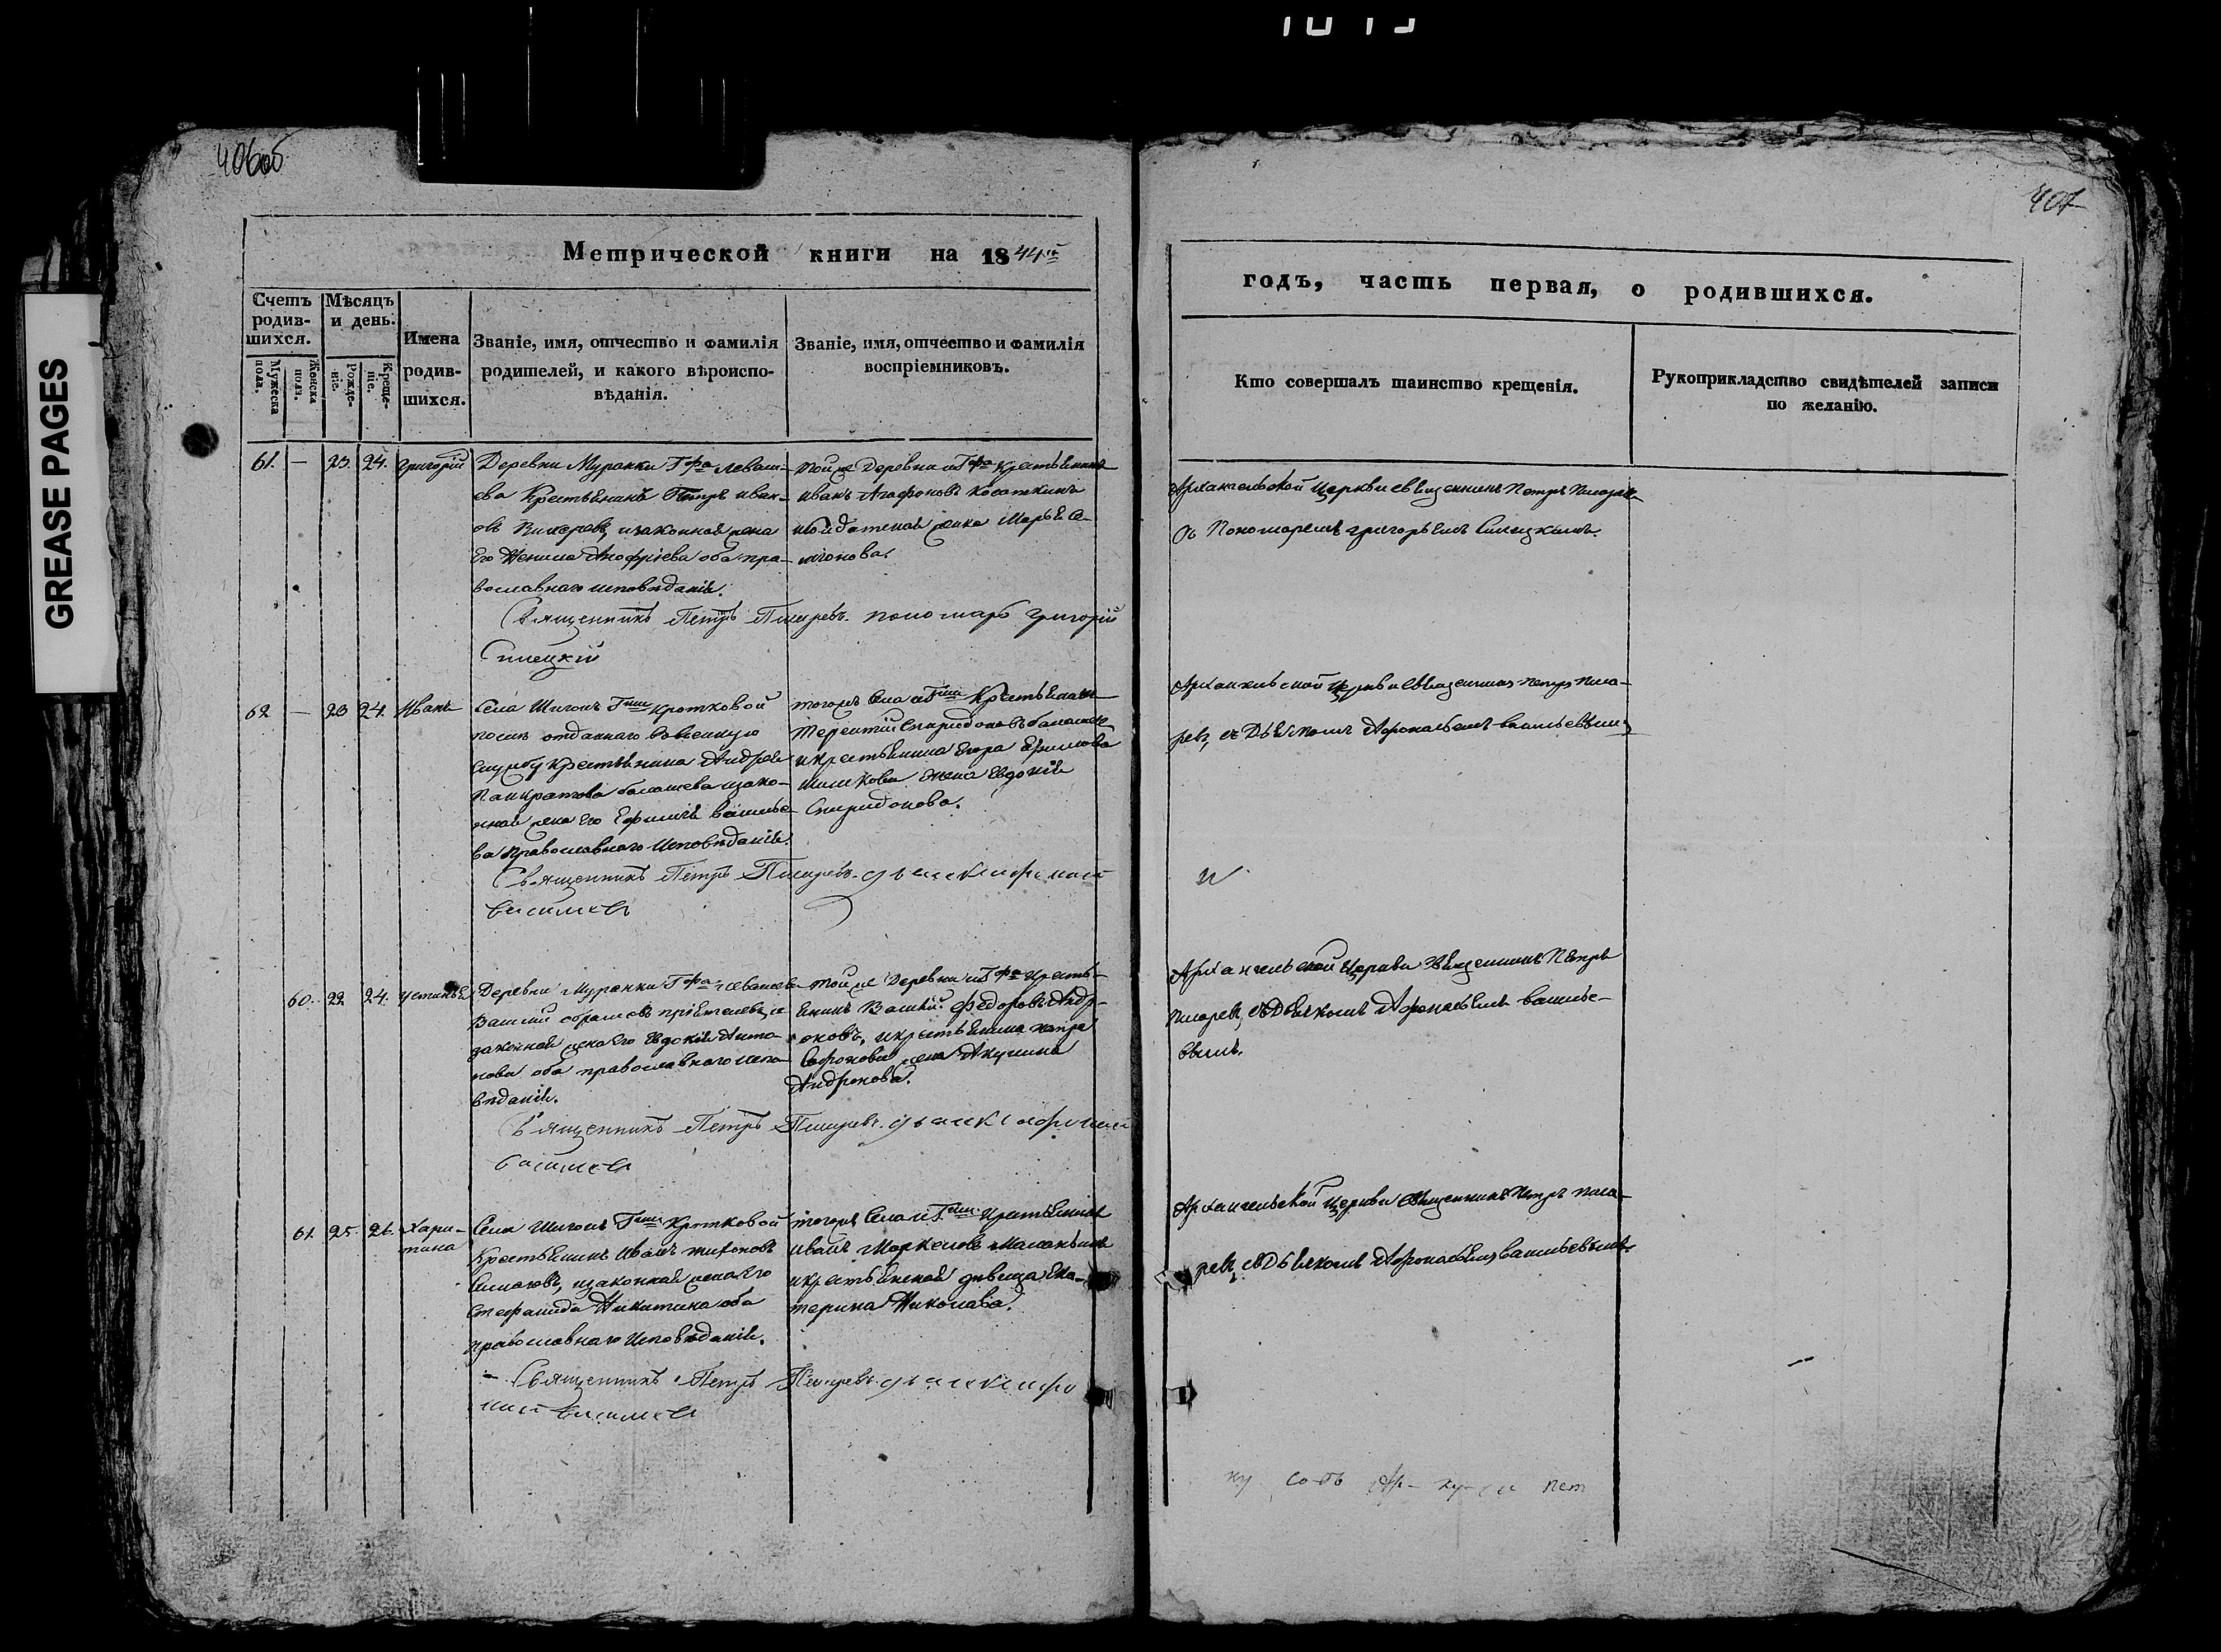 GREASE PAGES
406об
407
Метрической книги на 1844й
годъ, часть первая, о родившихся.
Счетъ родив-
шихся.
Мужеска пола.
Женска пола.
Мѣсяцъ
и день.
Рожде-
ніе.
Креще-
ніе.
Имена
родив-
шихся.
Званіе, имя, отчество и фамилія
родителей, и какого вѣроиспо-
вѣданія.
Званіе, имя, отчество и фамилія
воспріемниковъ.
Кто совершалъ таинство крещенія.
Рукоприкладство свидѣтелей записи
по желанію.
61. — 23. 24. Григорій
Деревни Муранки Гфа Леваш-
ева Крестьянинъ Петръ Иван-
овъ изаконная жена
Его Анофріева оба пра-
вославнаго исповѣданія.
Священникъ Петръ Писаревъ. пономарь Григорій
Силецкій
тойже Деревни иГфа Крестьянинъ
Иванъ Агафоновъ
жена Марья Се-
Архангельской Церкви священникъ Петръ Писарев
съ Пономаремъ Григорьемъ Силецкимъ.
62 — 23 24. Иванъ
Села Шигонъ Гжи Кротковой
послѣ отданнаго ввоенную
службу крестьянина Андрея
Панкратова балашева изако-
нной жена Его Ефимія Василье-
ва Православнаго Исповѣданія.
Священникъ Петръ Писаревъ. дьячекъ Афонасій
Василиевъ
тогожъ Села иГжи Крестьянинъ
Терентій Спиридоновъ балашевъ
икрестьянина Егора Ефимова
жена Евдокія
Спиридонова.
Архангельской Церкви священникъ Петръ Писа-
ревъ, съ Дьячкомъ Афонасьемъ Васильевымъ
60. 22. 24. Устинья
Деревни Муранки Гфа Левашева
Василій абрамовъ и
законная жена Его Евдокія Анто-
нова оба православнаго испо-
вѣданія.
Священникъ Петръ Писаревъ. дьячекъ Афонасій
Василиевъ
тойже Деревни иГфа Кресть-
янинъ Василій Федоровъ Андр-
оновъ, икрестьянина
жена Акулина
Андронова.
Архангельской Церкви Священникъ Петръ
Писаревъ, съ Дьячкомъ Афонасьемъ Василье-
вымъ.
61. 25. 26. Хари-
тина
Села Шигонъ Гжи Кротковой
Крестьянинъ Иванъ
изаконная жена Его
Стефанида Никитина оба
православнаго Исповѣданія.
Священникъ Петръ Писаревъ. дьячекъ Афо
насій Василиевъ
тогожъ Села иГжи Крестьянинъ
Иванъ Маркеловъ
икрестьянской дѣвица Ека-
терина Николаева.
Архангельской Церкви Священникъ Петръ Писа-
ревъ, съ Дьячкомъ Афонасьемъ Васильевымъ.